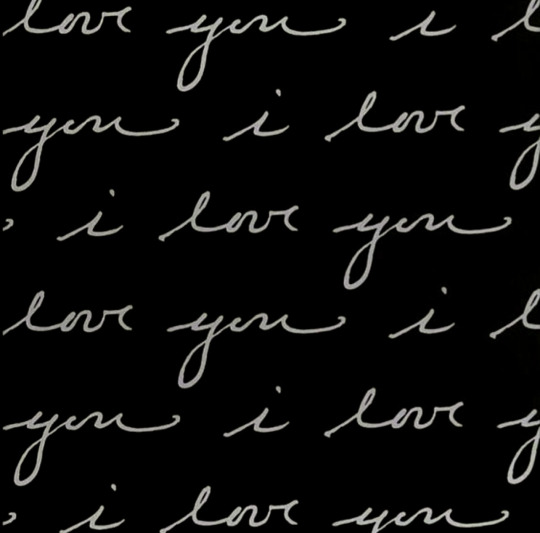 love you i l
you i love y
i love you
love you i l
you i love y
i love you